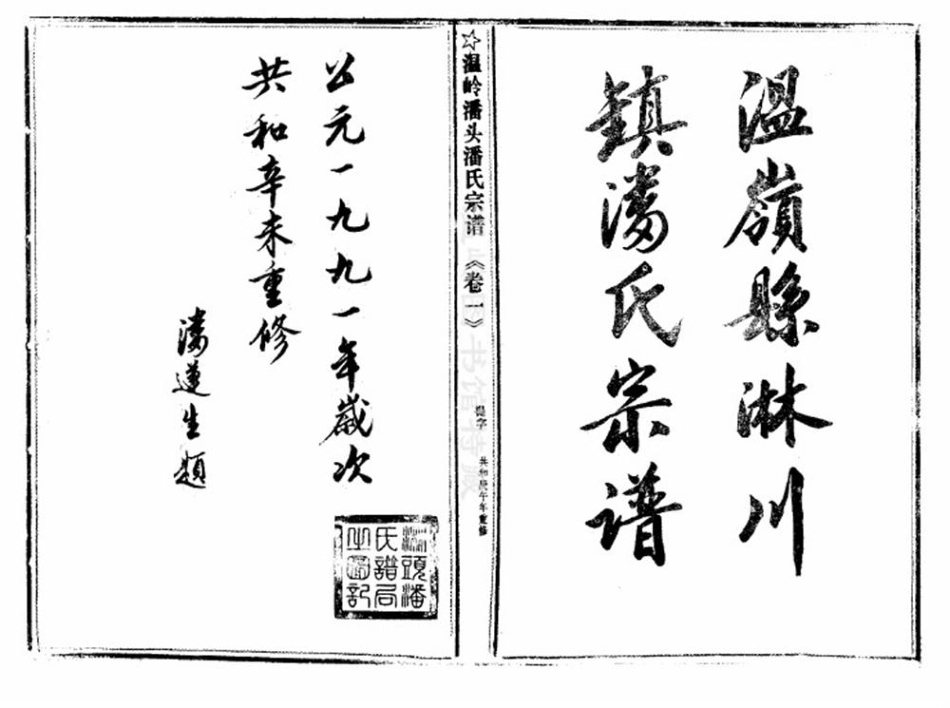 温嶺縣淋川
鎮潘氏宗谱
☆温岭潘头潘氏宗谱《卷一》
提字
共和庚午年重修
公元一九九一年歲次
共和辛未重修
潘遵生題
頭潘
氏譜局
之圖記
书馆特藏